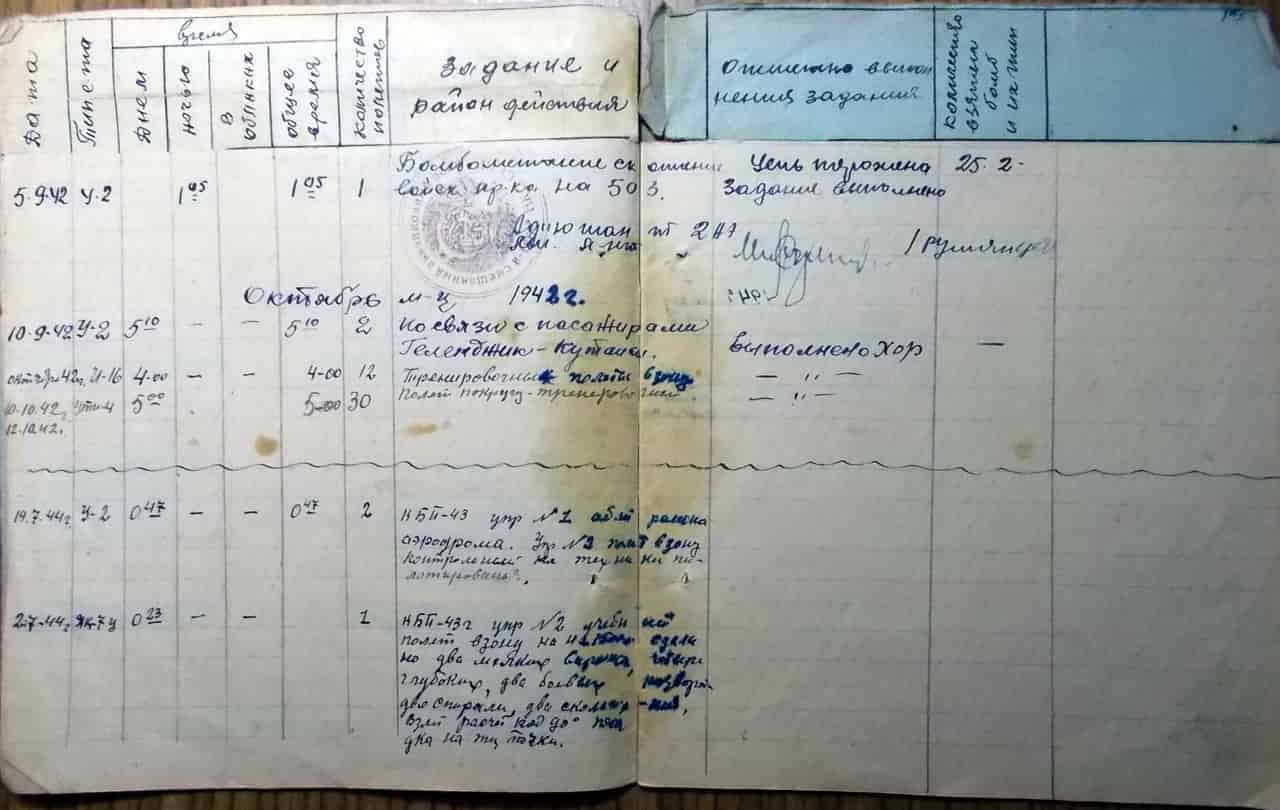 Дата
Тип с-та
Время
Днем
ночью
В облаках
общее время
количество полетов
Задание и
район действия
Отметка выпол
нения задания
количество взятых бомб и их тип
Бомбометание скопление Цель поражена 25. 2-
5-9-42 У-2 1 05 1 05 1 войск пр-ка на 503. Задание выполнено
Адъютант
Октябрь м-ц 1942г.
10-9-42 У-2 5 10 — — 5 10 2 По связи с пасажирами
Геленджик - Кутаиси. Выполнено Хор —
октябрь 42г. И-16 4-00 — — 4-00 12 Тренировочные полеты в зону — " —
10.10.42г. ути-4 5 00 5-00 30 Полет по кругу - тренировочный. — " —
12.10.42.
19.7.44г. У-2 0 47 — — 0 47 2 КБП-43 упр №1 облёт района
аэродрома. Упр №3 полёт в зону
контрольный на техники пи-
лотирования.
2-7-44г. Як-7у 0 23 — — 1 КБП-43г упр №2 учебный
полёт в зону на сдела
но два мелких виража, четыре
глубоких, два боевых разворо-
две спирали, два
взлёт расчёт посадка
дка на тц точки.